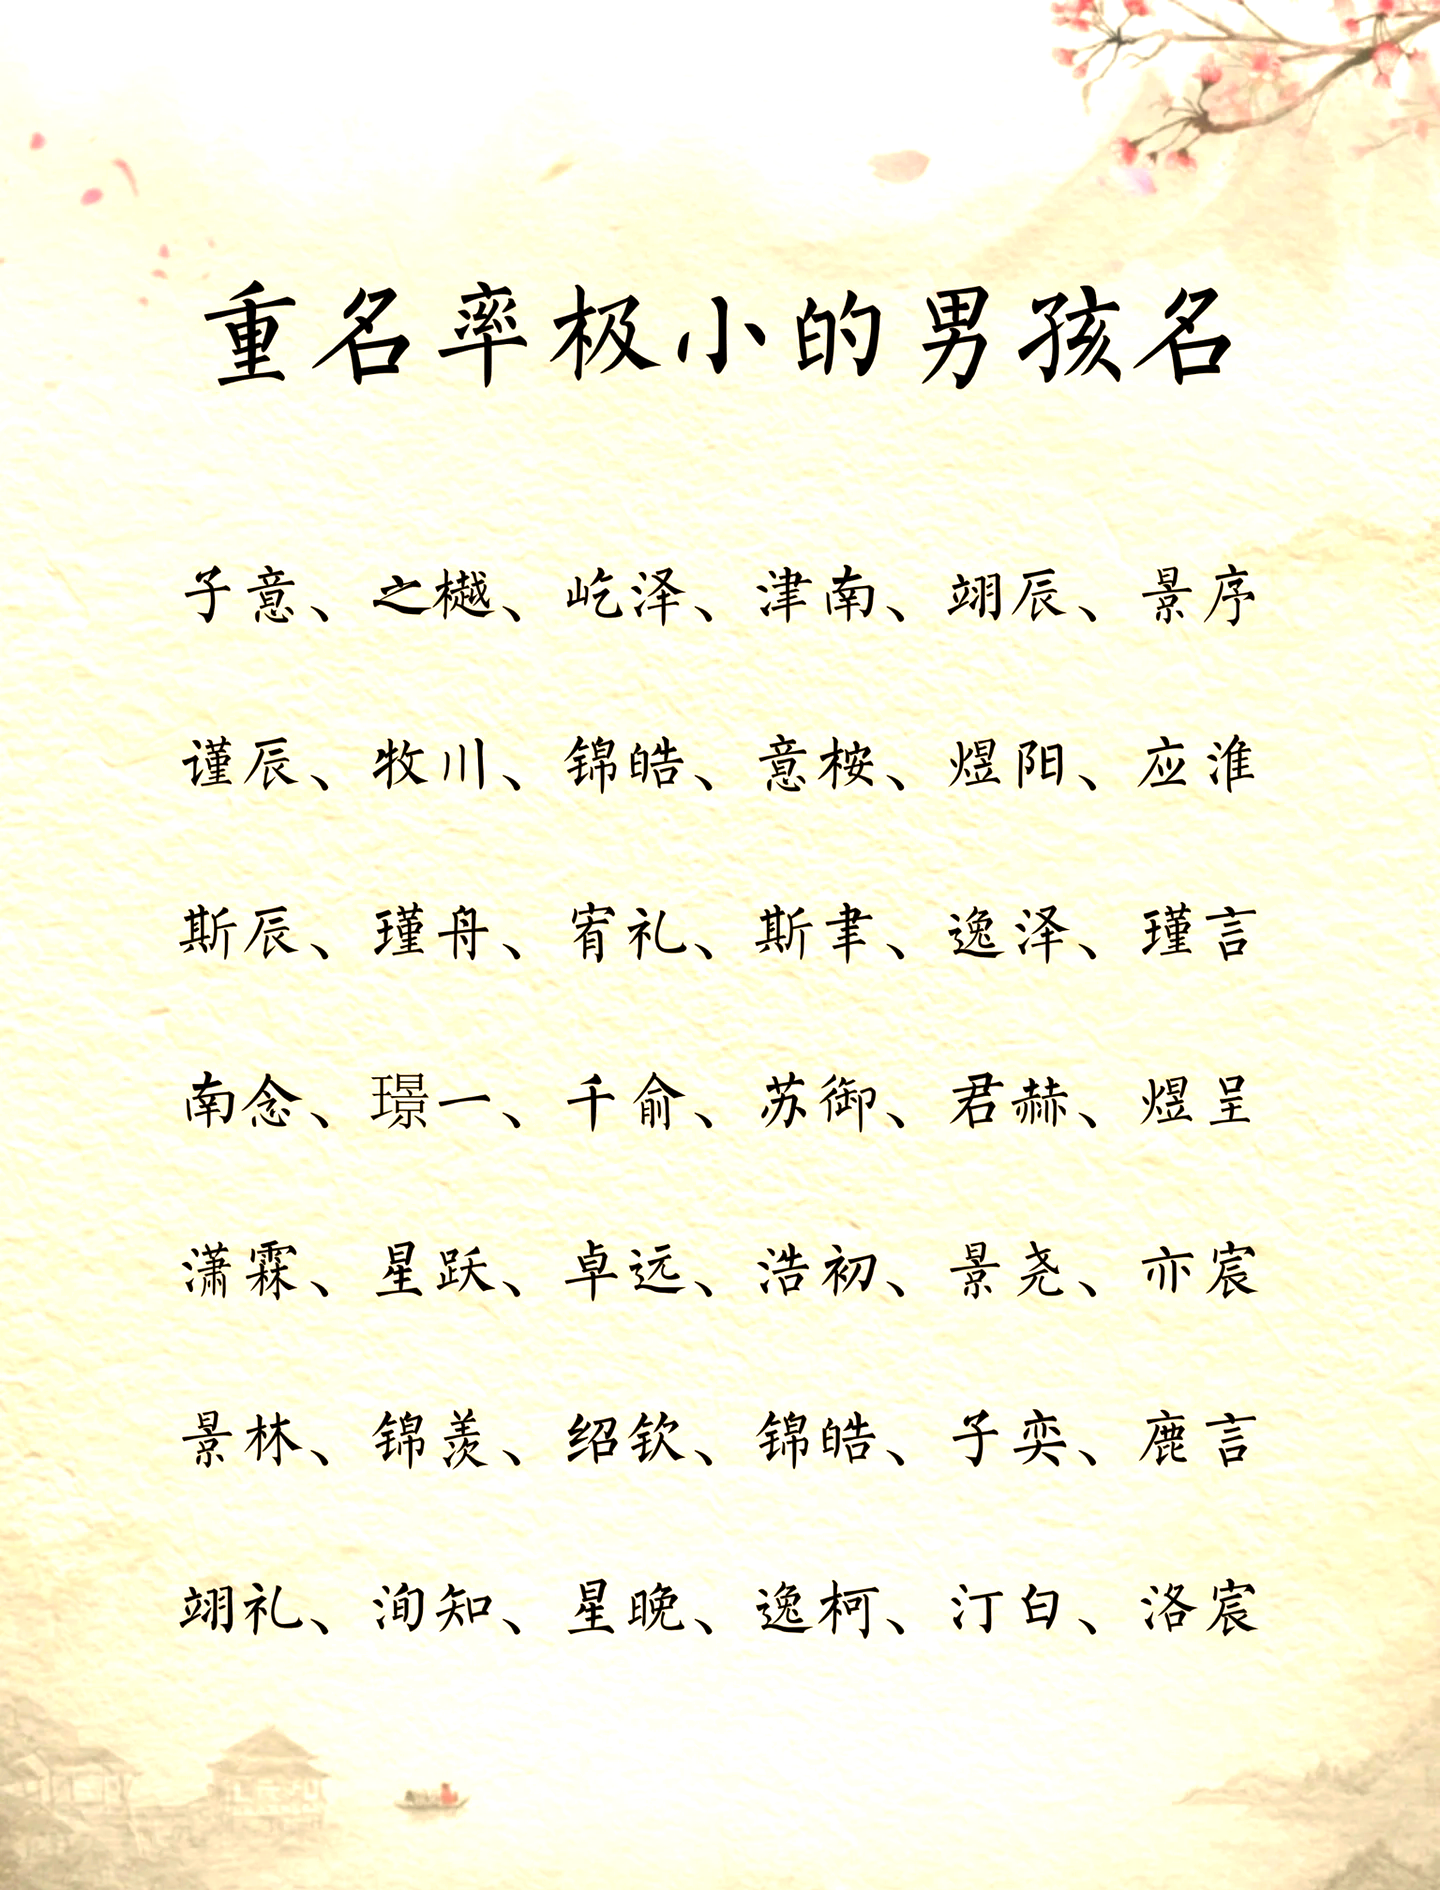 重名率极小的男孩名
子意、之樾、屹泽、津南、翊辰、景序
谨辰、牧川、锦皓、意桉、煜阳、应淮
斯辰、瑾舟、宥礼、斯聿、逸泽、瑾言
南念、璟一、千俞、苏御、君赫、煜呈
潇霖、星跃、卓远、浩初、景尧、亦宸
景林、锦羡、绍钦、锦皓、子奕、鹿言
翊礼、洵知、星晚、逸柯、汀白、洛宸